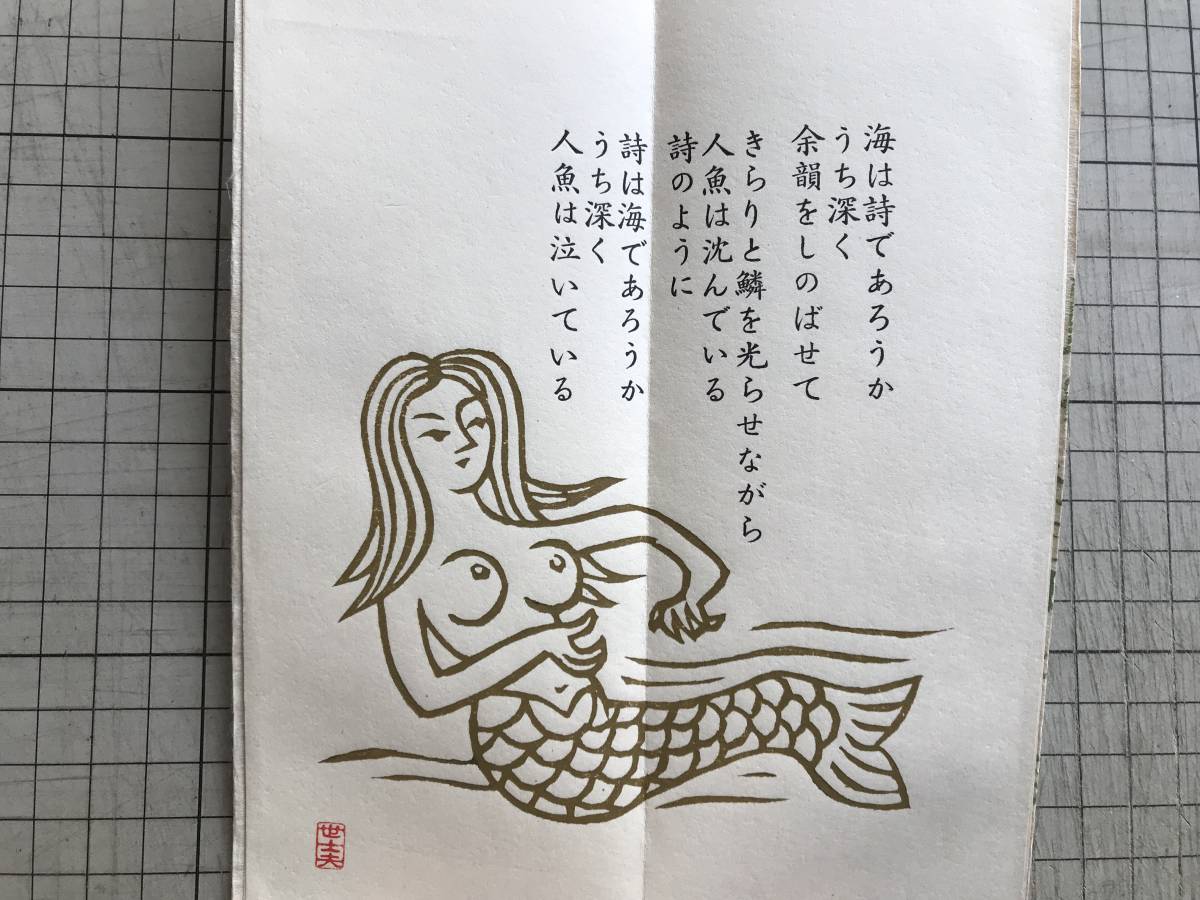 海は詩であろうか
うち深く
余韻をしのばせて
きらりと鱗を光らせながら
人魚は沈んでいる
詩のように
詩は海であろうか
うち深く
人魚は泣いている
世士夫